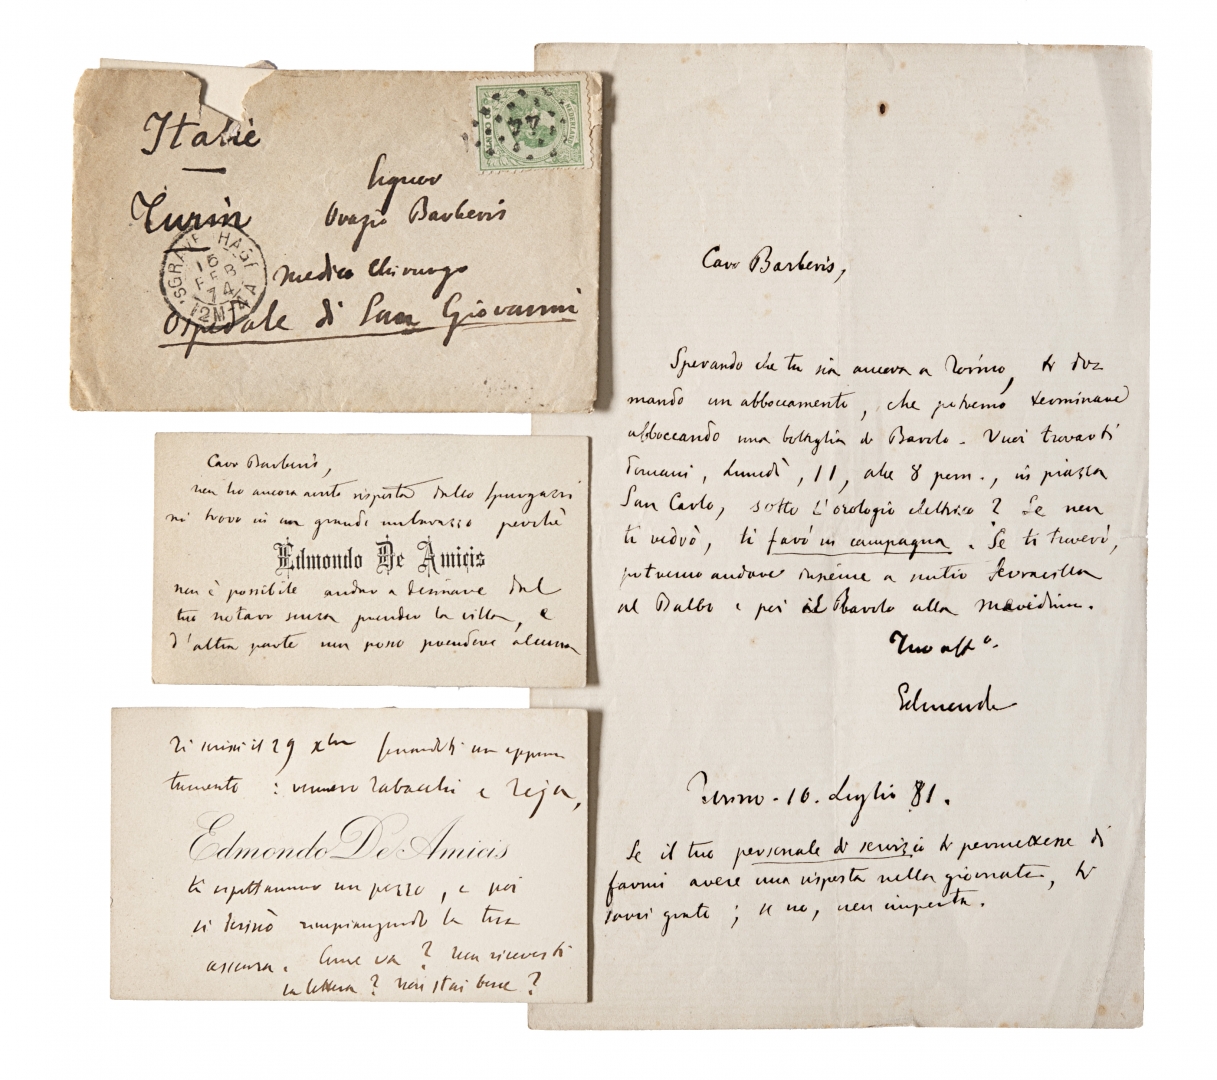 Italie
Turin
Signor
Orazio Barberis
Medico Chirurgo
Ospedale di San Giovanni
'SGRAVENHAGE
15
FEB
74
12M-4A
NEDERLAND
44
Caro Barberis,
non ho ancora avuto risposta dallo
mi trovo in un grande imbarazzo perchè
Edmondo De Amicis
non è possibile andar a desinare dal
tuo notaro senza prender la villa, e
d'altra parte non posso prendere alcuna
Ti scrissi il 29 Xbre fissandoti un appun
tamento: vennero Tabacchi e
Edmondo De Amicis
ti aspettammo un pezzo, e poi
si desinò rimpiangendo la tua
assenza. Come va? Non ricevesti
la lettera? Non stai bene?
Caro Barberis,
Sperando che tu sia ancora a Torino, ti do=
mando un abboccamento, che potremo terminare
abboccando una bottiglia di Barolo. Vuoi trovarti
domani, Lunedì, 11, alle 8 pom., in piazza
San Carlo, sotto l'orologio elettrico? Se non
ti vedrò, ti farò in campagna. Se ti troverò,
potremo andare insieme a
al Balbo e poi il Barolo alla
Tuo affo.
Edmondo
Torino - 10. Luglio 81.
Se il tuo personale di servizio ti permettesse di
farmi avere una risposta nella giornata, ti
sarei grato; se no, non importa.